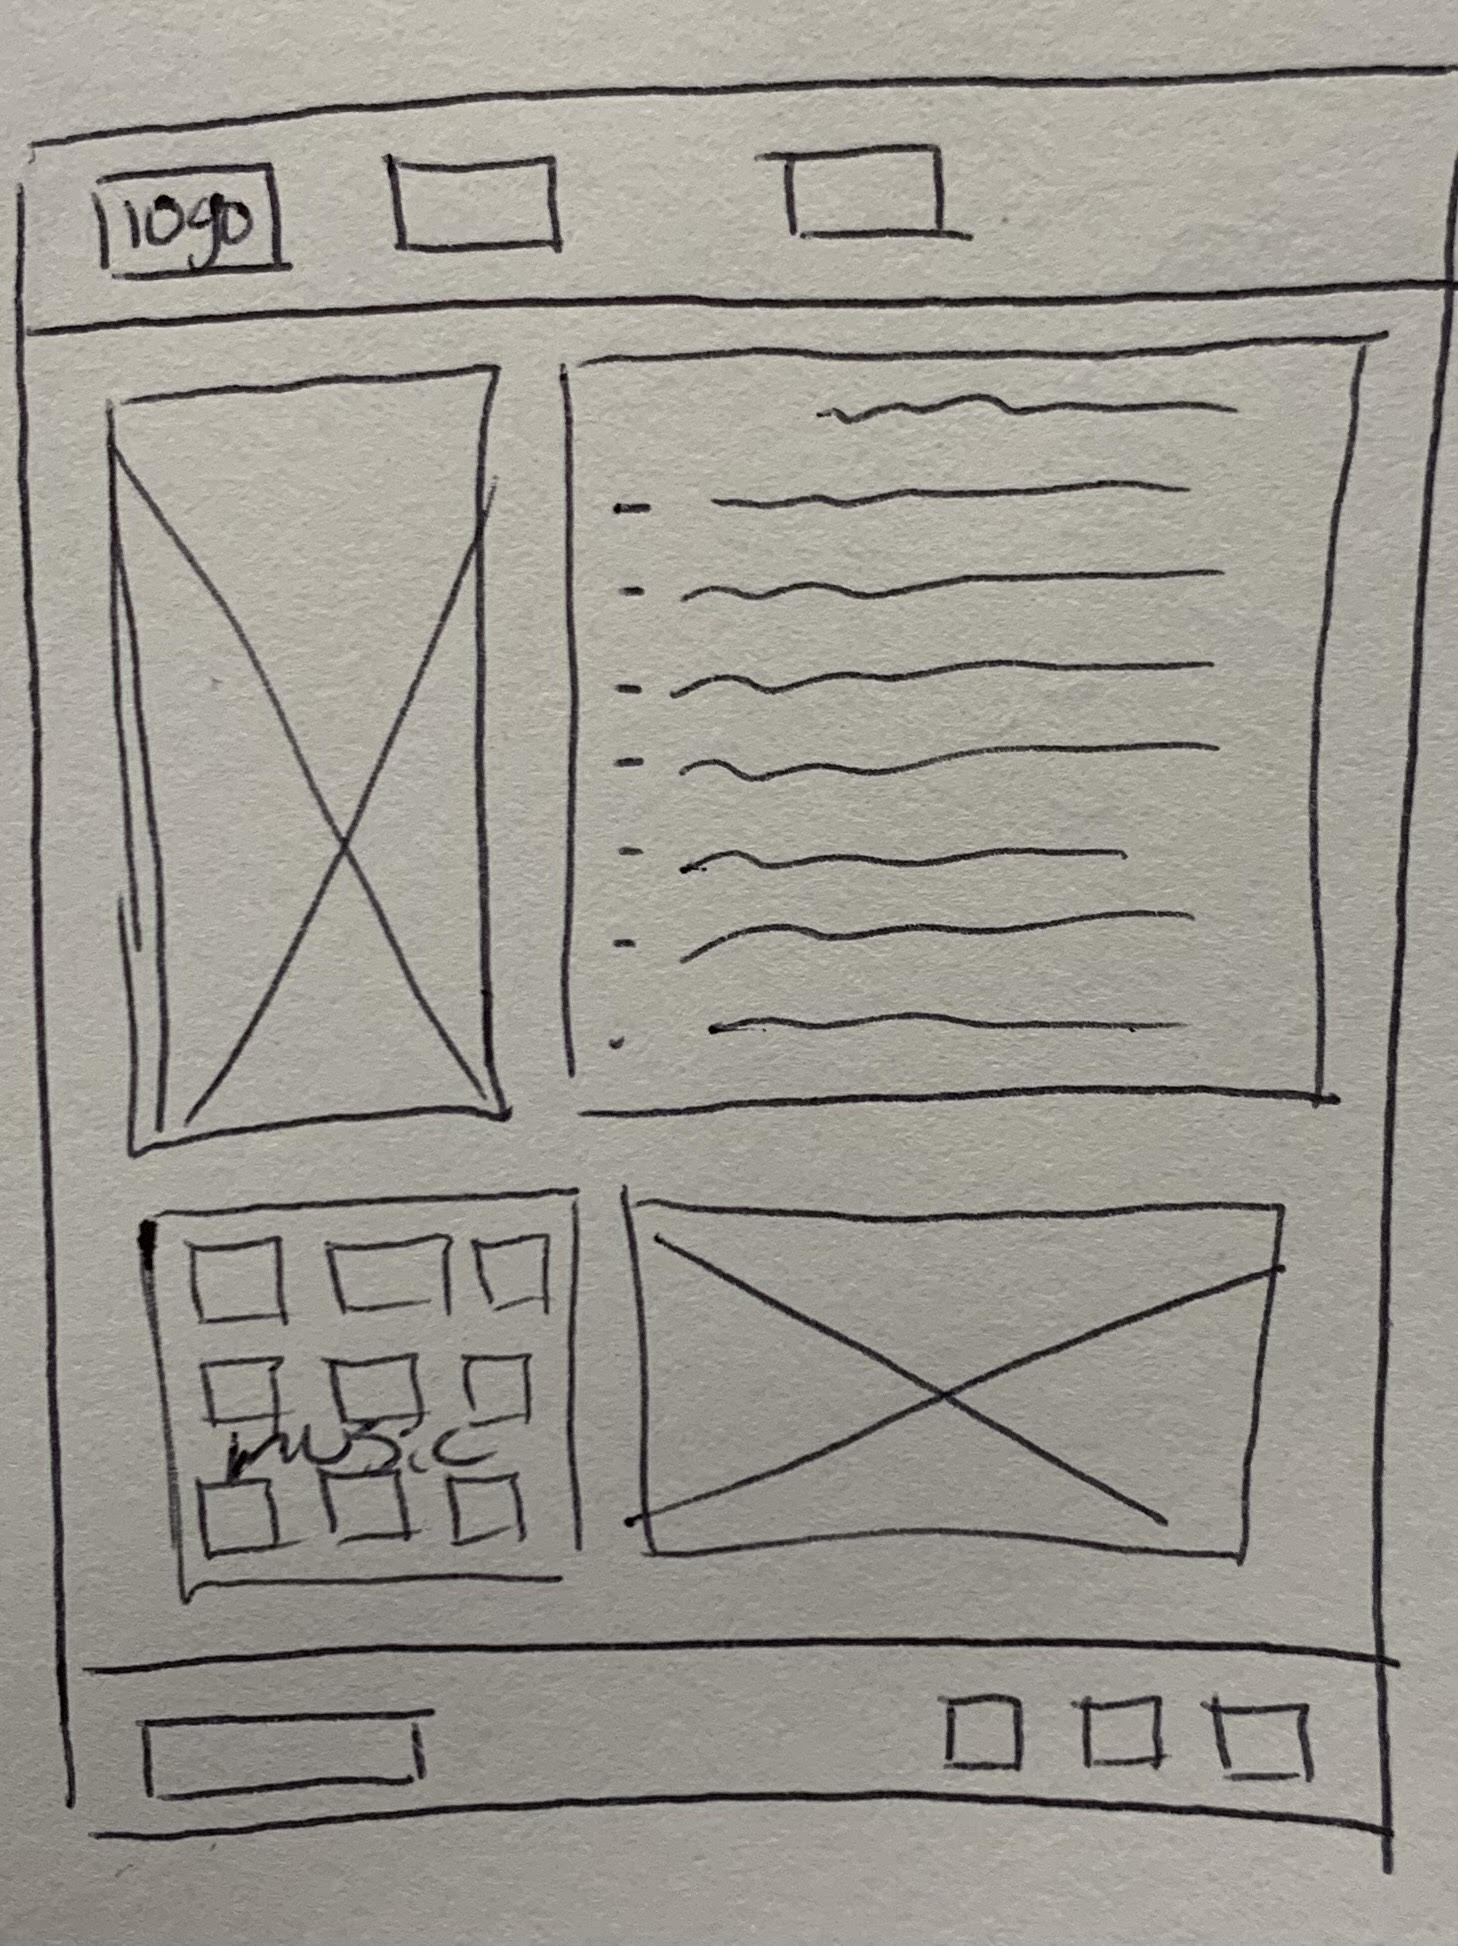 logo
music